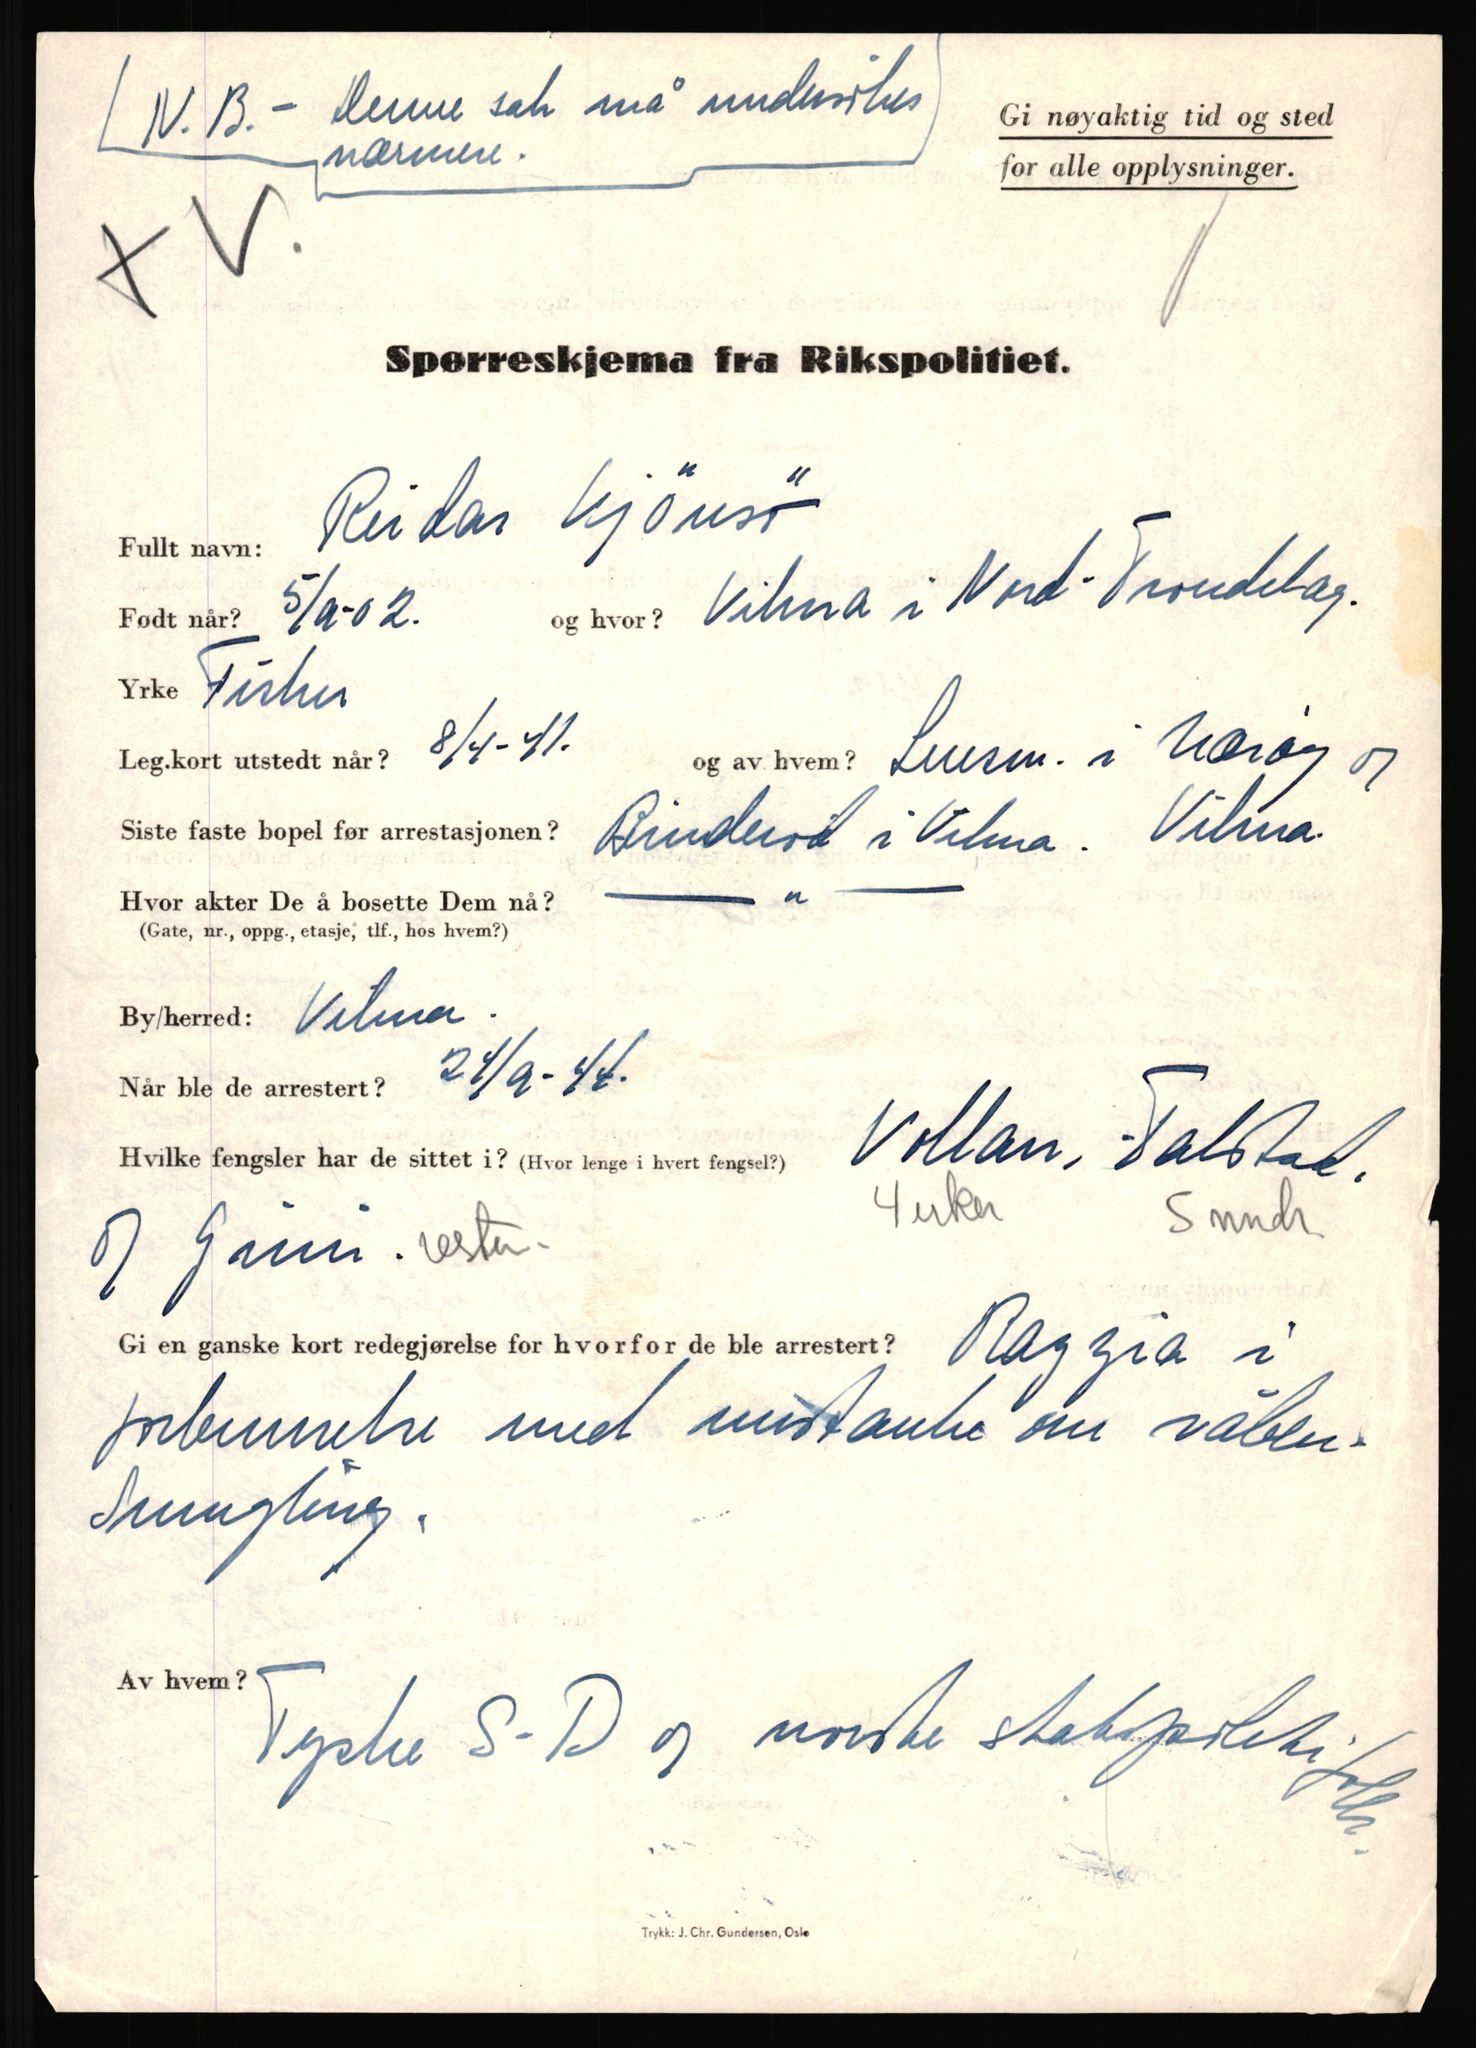 N.B. - Denne sak må undersökes
nærmere.
Gi nøyaktig tid og sted
for alle opplysninger.
x V.
Spørreskjema fra Rikspolitiet.
Fullt navn: Reidar Kjönsö
Født når? 5/9-02. og hvor? Vikna i Nord-Trondelag.
Yrke Fisker
Leg.kort utstedt når? 8/4-41. og av hvem? Lensm. i Nærøy og
Vikna.
Siste faste bopel før arrestasjonen? i Vikna.
Hvor akter De å bosette Dem nå? — " —
(Gate, nr., oppg., etasje, tlf., hos hvem?)
By/herred: Vikna.
Når ble de arrestert? 24/9-44.
Hvilke fengsler har de sittet i? (Hvor lenge i hvert fengsel?) Vollan, Falstad,
4 uker 5 mndr
og Grini. resten.
Gi en ganske kort redegjørelse for hvorfor de ble arrestert? Razzia i
forbinnelse med mistanke om våben-
smugling.
Av hvem? Tyske S-D og norske statspoliti folk.
Trykk: J. Chr. Gundersen, Oslo